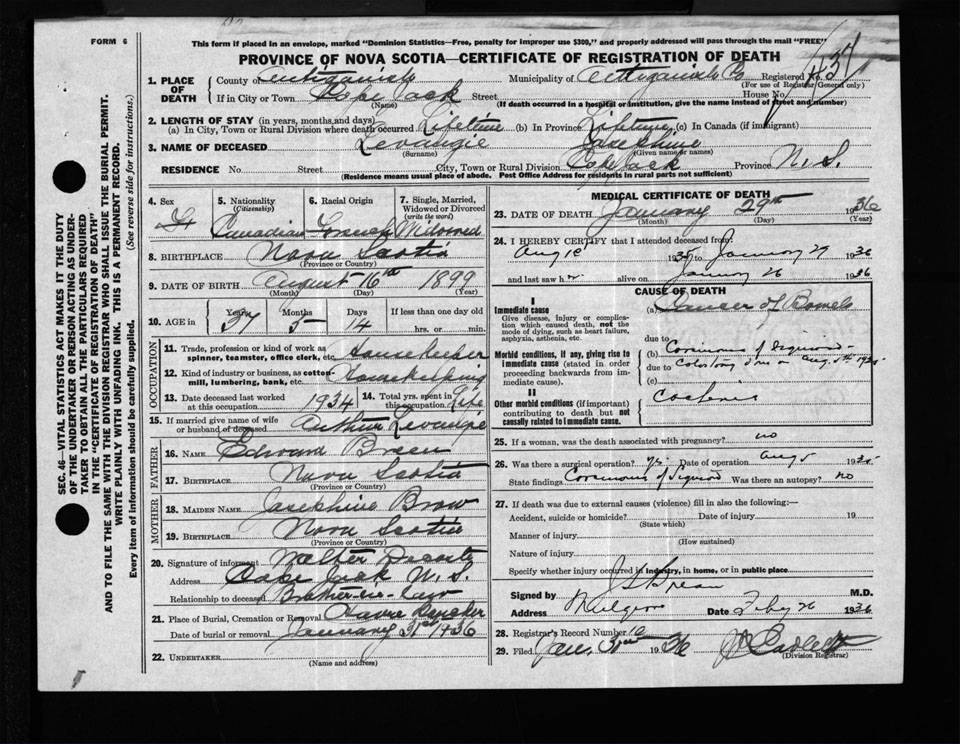 FORM 6
This form if placed in an envelope, marked "Dominion Statistics—Free, penalty for improper use $300," and properly addressed will pass through the mail "FREE"
PROVINCE OF NOVA SCOTIA—CERTIFICATE OF REGISTRATION OF DEATH
1. PLACE OF DEATH County of Antigonish Municipality of Antigonish Co Registered No.
(For use of Registrar General only)
If in City or Town Cape Jack Street House No.
(Name) (If death occurred in a hospital or institution, give the name instead of street and number)
2. LENGTH OF STAY (in years, months, and days)
(a) In City, Town or Rural Division where death occurred Lifetime (b) In Province Lifetime (c) In Canada (if immigrant)
3. NAME OF DECEASED Levangie Josephine
(Surname) (Given name or names)
RESIDENCE No. Street City, Town or Rural Division Cape Jack Province N. S.
(Residence means usual place of abode. Post Office Address for residents in rural parts not sufficient)
4. Sex F
5. Nationality (Citizenship) Canadian
6. Racial Origin French
7. Single, Married, Widowed or Divorced (write the word) Widowed
8. BIRTHPLACE Nova Scotia
(Province or Country)
9. DATE OF BIRTH August 16th 1899
(Month) (Day) (Year)
10. AGE in Years 37 Months 5 Days 14 If less than one day old hrs. or min.
OCCUPATION
11. Trade, profession or kind of work as spinner, teamster, office clerk, etc. Housekeeper
12. Kind of industry or business, as cotton-mill, lumbering, bank, etc. Housekeeping
13. Date deceased last worked at this occupation 1934 14. Total yrs. spent in this occupation Life
15. If married give name of wife or husband of deceased Arthur Levangie
FATHER
16. NAME Edward Breen
17. BIRTHPLACE Nova Scotia
(Province or Country)
MOTHER
18. MAIDEN NAME Josephine Brow
19. BIRTHPLACE Nova Scotia
(Province or Country)
20. Signature of informant Walter Decoste
Address Cape Jack N. S.
Relationship to deceased Brother-in-law
21. Place of Burial, Cremation or Removal Havre Boucher
Date of burial or removal January 31st 1936
22. UNDERTAKER
(Name and address)
MEDICAL CERTIFICATE OF DEATH
23. DATE OF DEATH January 29th 1936
(Month) (Day) (Year)
24. I HEREBY CERTIFY that I attended deceased from:
Aug 1st to January 29 1936
and last saw h alive on January 26 1936
CAUSE OF DEATH
I
Immediate cause
Give disease, injury or complication which caused death, not the mode of dying, such as heart failure, asphyxia, asthenia, etc.
(a) Cancer of Bowels
due to
Morbid conditions, if any, giving rise to immediate cause (stated in order proceeding backwards from immediate cause).
(b) Carcinoma of Sigmoid
due to Colostomy done on Aug 5th 1935
(c)
II
Other morbid conditions (if important) contributing to death but not causally related to immediate cause.
25. If a woman, was the death associated with pregnancy? no
26. Was there a surgical operation? yes Date of operation Aug 5 1935
State findings Carcinoma of Sigmoid Was there an autopsy? no
27. If death was due to external causes (violence) fill in also the following:—
Accident, suicide or homicide? Date of injury 19
(State which)
Manner of injury
(How sustained)
Nature of injury
Specify whether injury occurred in industry, in home, or in public place
Signed by M.D.
Address Mulgrave Date Feby 26 1936
28. Registrar's Record Number 10
29. Filed Jan. 31st 1936
(Division Registrar)
SEC. 46—VITAL STATISTICS ACT MAKES IT THE DUTY
OF THE UNDERTAKER OR PERSON ACTING AS UNDER-
TAKER TO OBTAIN ALL THE PARTICULARS REQUIRED
IN THE "CERTIFICATE OF REGISTRATION OF DEATH"
AND TO FILE THE SAME WITH THE DIVISION REGISTRAR WHO SHALL ISSUE THE BURIAL PERMIT.
WRITE PLAINLY WITH UNFADING INK. THIS IS A PERMANENT RECORD.
Every item of information should be carefully supplied. (See reverse side for instructions.)